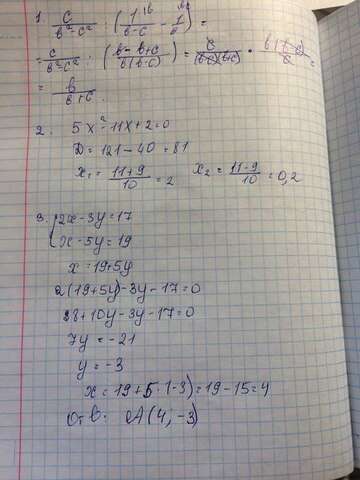 1. c/(в²-c²) : (1/(в-c) - 1/в) =
= c/(в²-c²) : (в-в+c)/(в(в-c)) = c/((в-c)(в+c)) · в(в-c)/c =
= в/(в+c).
2. 5x²-11x+2=0
D = 121-40=81
x₁ = (11+9)/10 = 2 x₂ = (11-9)/10 = 0,2
3. {2x-3y=17
x-5y=19
x=19+5y
2(19+5y)-3y-17=0
38+10y-3y-17=0
7y=-21
y=-3
x=19+5·(-3)=19-15=4
Отв: A(4; -3)